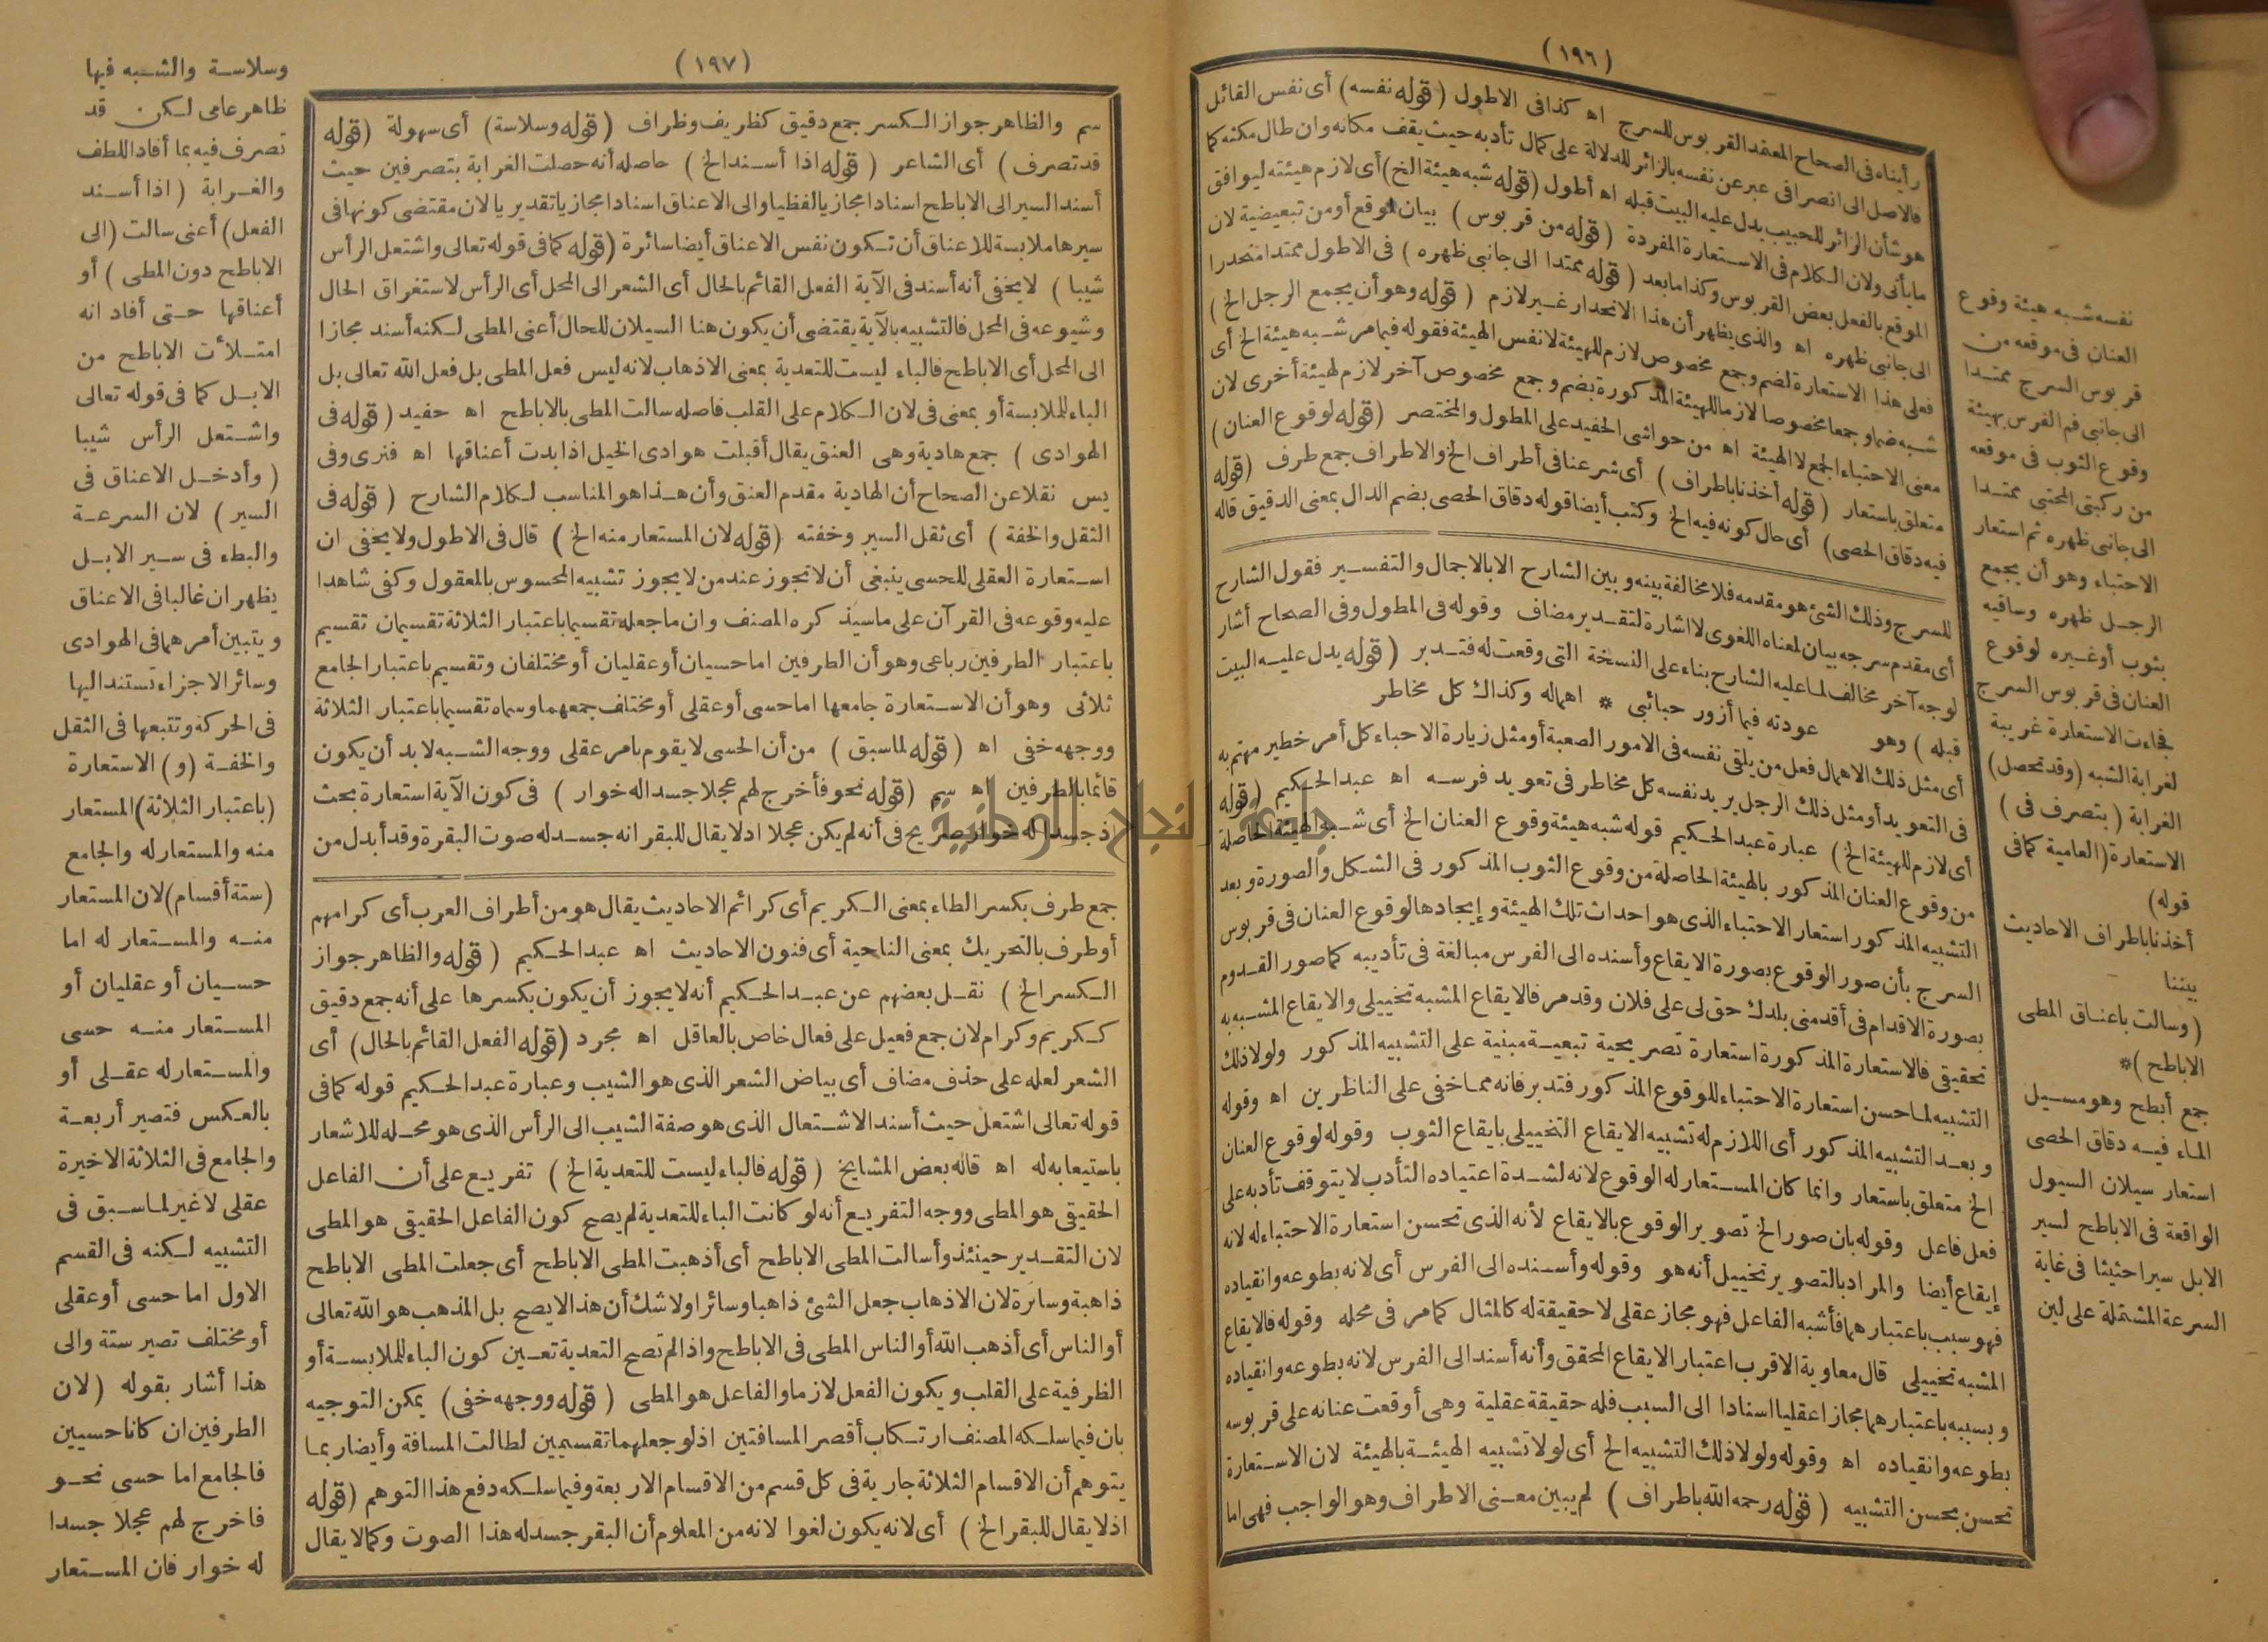 (١٩٦)
رأيناه فى الصحاح المعتمد القربوس للسرج اه كذا فى الاطول (قوله نفسه) أى نفس القائل
فالاصل الى انصرافى عبر عن نفسه بالزائر للدلالة على كمال تأدبه حيث يقف مكانه وان طال مكثه كما
هو شأن الزائر للحبيب يدل عليه البيت قبله اه أطول (قوله شبه هيئة الخ) أى لازم هيئته ليوافق
ما يأتى ولان الكلام فى الاستعارة المفردة (قوله من قربوس) بيان لموقع أو من تبعيضية لان
الموقع بالفعل بعض القربوس وكذا ما بعد (قوله ممتدا الى جانبى ظهره) فى الاطول ممتدا منحدرا
الى جانبى ظهره اه والذى يظهر أن هذا الانحدار غير لازم (قوله وهو أن يجمع الرجل الخ)
فعلى هذا الاستعارة لضم وجمع مخصوص لازم للهيئة لا نفس الهيئة فقوله فيما مر شبه هيئة الخ أى
شبه ضما وجمعا مخصوصا لازما للهيئة المذكورة بضم وجمع مخصوص آخر لازم لهيئة أخرى لان
معنى الاحتباء الجمع لا الهيئة اه من حواشى الحفيد على المطول والمختصر (قوله لوقوع العنان)
متعلق باستعار (قوله أخذنا باطراف) أى شرعنا فى أطراف الخ والاطراف جمع طرف (قوله
فيه دقاق الحصى) أى حال كونه فيه الخ وكتب أيضا قوله دقاق الحصى بضم الدال بمعنى الدقيق قاله
للسرج وذلك الشئ هو مقدمه فلا مخالفة بينه وبين الشارح الا بالاجمال والتفسير فقول الشارح
أى مقدم سرجه بيان لمعناه اللغوى لا اشارة لتقدير مضاف وقوله فى المطول وفى الصحاح أشار
لوجه آخر مخالف لما عليه الشارح بناء على النسخة التى وقعت له فتدبر (قوله يدل عليه البيت
قبله) وهو عودته فيما أزور حبائبى * اهماله وكذاك كل مخاطر
أى مثل ذلك الاهمال فعل من يلقى نفسه فى الامور الصعبة أو مثل زيارة الاحباء كل أمر خطير مهتم به
فى التعويد أو مثل ذلك الرجل يريد نفسه كل مخاطر فى تعويد فرسه اه عبد الحكيم (قوله
أى لازم للهيئة الخ) عبارة عبد الحكيم قوله شبه هيئة وقوع العنان الخ أى شبه الهيئة الحاصلة
من وقوع العنان المذكور بالهيئة الحاصلة من وقوع الثوب المذكور فى الشكل والصورة وبعد
التشبيه المذكور استعار الاحتباء الذى هو احداث تلك الهيئة وإيجادها لوقوع العنان فى قربوس
السرج بأن صور الوقوع بصورة الايقاع وأسنده الى الفرس مبالغة فى تأديبه كما صور القدوم
بصورة الاقدام فى أقدمنى بلدك حق لى على فلان وقد مر فالايقاع المشبه تخييلى والايقاع المشبه به
تحقيقى فالاستعارة المذكورة استعارة تصريحية تبعية مبنية على التشبيه المذكور ولولا ذلك
التشبيه لما حسن استعارة الاحتباء للوقوع المذكور فتدبر فانه مما خفى على الناظرين اه وقوله
وبعد التشبيه المذكور أى اللازم له تشبيه الايقاع التخييلى بايقاع الثوب وقوله لوقوع العنان
الخ متعلق باستعار وانما كان المستعار له الوقوع لانه لشدة اعتياده التأدب لا يتوقف تأدبه على
فعل فاعل وقوله بان صور الخ تصوير الوقوع بالايقاع لأنه الذى تحسن استعارة الاحتباء له لانه
إيقاع أيضا والمراد بالتصوير تخييل أنه هو وقوله وأسنده الى الفرس أى لانه بطوعه وانقياده
فهو سبب باعتبارهما فأشبه الفاعل فهو مجاز عقلى لا حقيقة له كالمثال كما مر فى محله وقوله فالايقاع
المشبه تخييلى قال معاوية الاقرب اعتبار الايقاع المحقق وأنه أسند الى الفرس لانه بطوعه وانقياده
وبسببه باعتبارهما مجازا عقليا اسنادا الى السبب فله حقيقة عقلية وهى أوقعت عنانه على قربوسه
بطوعه وانقياده اه وقوله ولولا ذلك التشبيه الخ أى لولا تشبيه الهيئة بالهيئة لان الاستعارة
تحسن بحسن التشبيه (قوله رحمه الله باطراف) لم يبين معنى الاطراف وهو الواجب فهى اما
نفسه شبه هيئة وقوع
العنان فى موقعه من
قربوس السرج ممتدا
الى جانبى فم الفرس بهيئة
وقوع الثوب فى موقعه
من ركبتى المحتبى ممتدا
الى جانبى ظهره ثم استعار
الاحتباء وهو أن يجمع
الرجل ظهره وساقيه
بثوب أو غيره لوقوع
العنان فى قربوس السرج
فجاءت الاستعارة غريبة
لغرابة الشبه (وقد تحصل)
الغرابة (بتصرف فى)
الاستعارة (العامية كما فى
قوله)
أخذنا باطراف الاحاديث
بيننا
(وسالت باعناق المطى
الاباطح)*
جمع أبطح وهو مسيل
الماء فيه دقاق الحصى
استعار سيلان السيول
الواقعة فى الاباطح لسير
الابل سيرا حثيثا فى غاية
السرعة المشتملة على لين
(١٩٧)
سم والظاهر جواز الكسر جمع دقيق كظريف وظراف (قوله وسلاسة) أى سهولة (قوله
قد تصرف) أى الشاعر (قوله اذا أسند الخ) حاصله أنه حصلت الغرابة بتصرفين حيث
أسند السير الى الاباطح اسنادا مجازيا لفظيا والى الاعناق اسنادا مجازيا تقديريا لان مقتضى كونها فى
سيرها ملابسة للاعناق أن تكون نفس الاعناق أيضا سائرة (قوله كما فى قوله تعالى واشتعل الرأس
شيبا) لا يخفى أنه أسند فى الآية الفعل القائم بالحال أى الشعر الى المحل أى الرأس لاستغراق الحال
وشيوعه فى المحل فالتشبيه بالآية يقتضى أن يكون هنا السيلان للحال أعنى المطى لكنه أسند مجازا
الى المحل أى الاباطح فالباء ليست للتعدية بمعنى الاذهاب لانه ليس فعل المطى بل فعل الله تعالى بل
الباء للملابسة أو بمعنى فى لان الكلام على القلب فاصله سالت المطى بالاباطح اه حفيد (قوله فى
الهوادى) جمع هادية وهى العنق يقال أقبلت هوادى الخيل اذا بدت أعناقها اه فنرى وفى
يس نقلا عن الصحاح أن الهادية مقدم العنق وأن هذا هو المناسب لكلام الشارح (قوله فى
الثقل والخفة) أى ثقل السير وخفته (قوله لان المستعار منه الخ) قال فى الاطول ولا يخفى ان
استعارة العقلى للحسى ينبغى أن لا تجوز عند من لا يجوز تشبيه المحسوس بالمعقول وكفى شاهدا
عليه وقوعه فى القرآن على ما سيذكره المصنف وان ما جعله تقسيما باعتبار الثلاثة تقسيمان تقسيم
باعتبار الطرفين رباعى وهو أن الطرفين اما حسيان أو عقليان أو مختلفان وتقسيم باعتبار الجامع
ثلاثى وهو أن الاستعارة جامعها اما حسى أو عقلى أو مختلف جمعهما وسماه تقسيما باعتبار الثلاثة
ووجهه خفى اه (قوله لما سبق) من أن الحسى لا يقوم بامر عقلى ووجه الشبه لا بد أن يكون
قائما بالطرفين اه سم (قوله نحو فأخرج لهم عجلا جسدا له خوار) فى كون الآية استعارة بحث
اذ جسدا له خوار صريح فى أنه لم يكن عجلا اذ لا يقال للبقر انه جسد له صوت البقرة وقد أبدل من
جمع طرف بكسر الطاء بمعنى الكريم أى كرائم الاحاديث يقال هو من أطراف العرب أى كرامهم
أو طرف بالتحريك بمعنى الناحية أى فنون الاحاديث اه عبد الحكيم (قوله والظاهر جواز
الكسر الخ) نقل بعضهم عن عبد الحكيم أنه لا يجوز أن يكون بكسرها على أنه جمع دقيق
ككريم وكرام لان جمع فعيل على فعال خاص بالعاقل اه مجرد (قوله الفعل القائم بالحال) أى
الشعر لعله على حذف مضاف أى بياض الشعر الذى هو الشيب وعبارة عبد الحكيم قوله كما فى
قوله تعالى اشتعل حيث أسند الاشتعال الذى هو صفة الشيب الى الرأس الذى هو محله للاشعار
باستيعابه له اه قاله بعض المشايخ (قوله فالباء ليست للتعدية الخ) تفريع على أن الفاعل
الحقيقى هو المطى ووجه التفريع أنه لو كانت الباء للتعدية لم يصح كون الفاعل الحقيقى هو المطى
لان التقدير حينئذ وأسالت المطى الاباطح أى أذهبت المطى الاباطح أى جعلت المطى الاباطح
ذاهبة وسائرة لان الاذهاب جعل الشئ ذاهبا وسائرا ولا شك أن هذا لا يصح بل المذهب هو الله تعالى
أو الناس أى أذهب الله أو الناس المطى فى الاباطح واذا لم تصح التعدية تعين كون الباء للملابسة أو
الظرفية على القلب ويكون الفعل لازما والفاعل هو المطى (قوله ووجهه خفى) يمكن التوجيه
بان فيما سلكه المصنف ارتكاب أقصر المسافتين اذ لو جعلهما تقسيمين لطالت المسافة وأيضا ربما
يتوهم أن الاقسام الثلاثة جارية فى كل قسم من الاقسام الاربعة وفيما سلكه دفع هذا التوهم (قوله
اذ لا يقال للبقر الخ) أى لانه يكون لغوا لانه من المعلوم أن البقر جسد له هذا الصوت وكما لا يقال
وسلاسة والشبه فيها
ظاهر عامى لكن قد
تصرف فيه بما أفاد اللطف
والغرابة (اذا أسند
الفعل) أعنى سالت (الى
الاباطح دون المطى) أو
أعناقها حتى أفاد انه
امتلأت الاباطح من
الابل كما فى قوله تعالى
واشتعل الرأس شيبا
(وأدخل الاعناق فى
السير) لان السرعة
والبطء فى سير الابل
يظهران غالبا فى الاعناق
ويتبين أمرهما فى الهوادى
وسائر الاجزاء تستند اليها
فى الحركة وتتبعها فى الثقل
والخفة (و) الاستعارة
(باعتبار الثلاثة) المستعار
منه والمستعار له والجامع
(ستة أقسام) لان المستعار
منه والمستعار له اما
حسيان أو عقليان أو
المستعار منه حسى
والمستعار له عقلى أو
بالعكس فتصير أربعة
والجامع فى الثلاثة الاخيرة
عقلى لا غير لما سبق فى
التشبيه لكنه فى القسم
الاول اما حسى أو عقلى
أو مختلف تصير ستة والى
هذا أشار بقوله (لان
الطرفين ان كانا حسيين
فالجامع اما حسى نحو
فاخرج لهم عجلا جسدا
له خوار فان المستعار
جامعة النجاح الوطنية